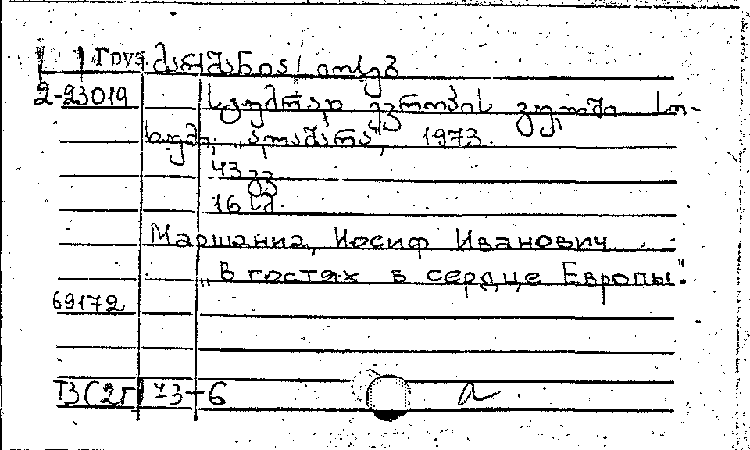 Груз მარშანია, იოსებ
2-23019 სტუმრად ევროპის გულში. სო-
ხუმი, "ალაშარა", 1973.
43 გვ
16 სმ.
Маршания, Иосиф Иванович
„В гостях в сердце Европы".
69172
73-6 а